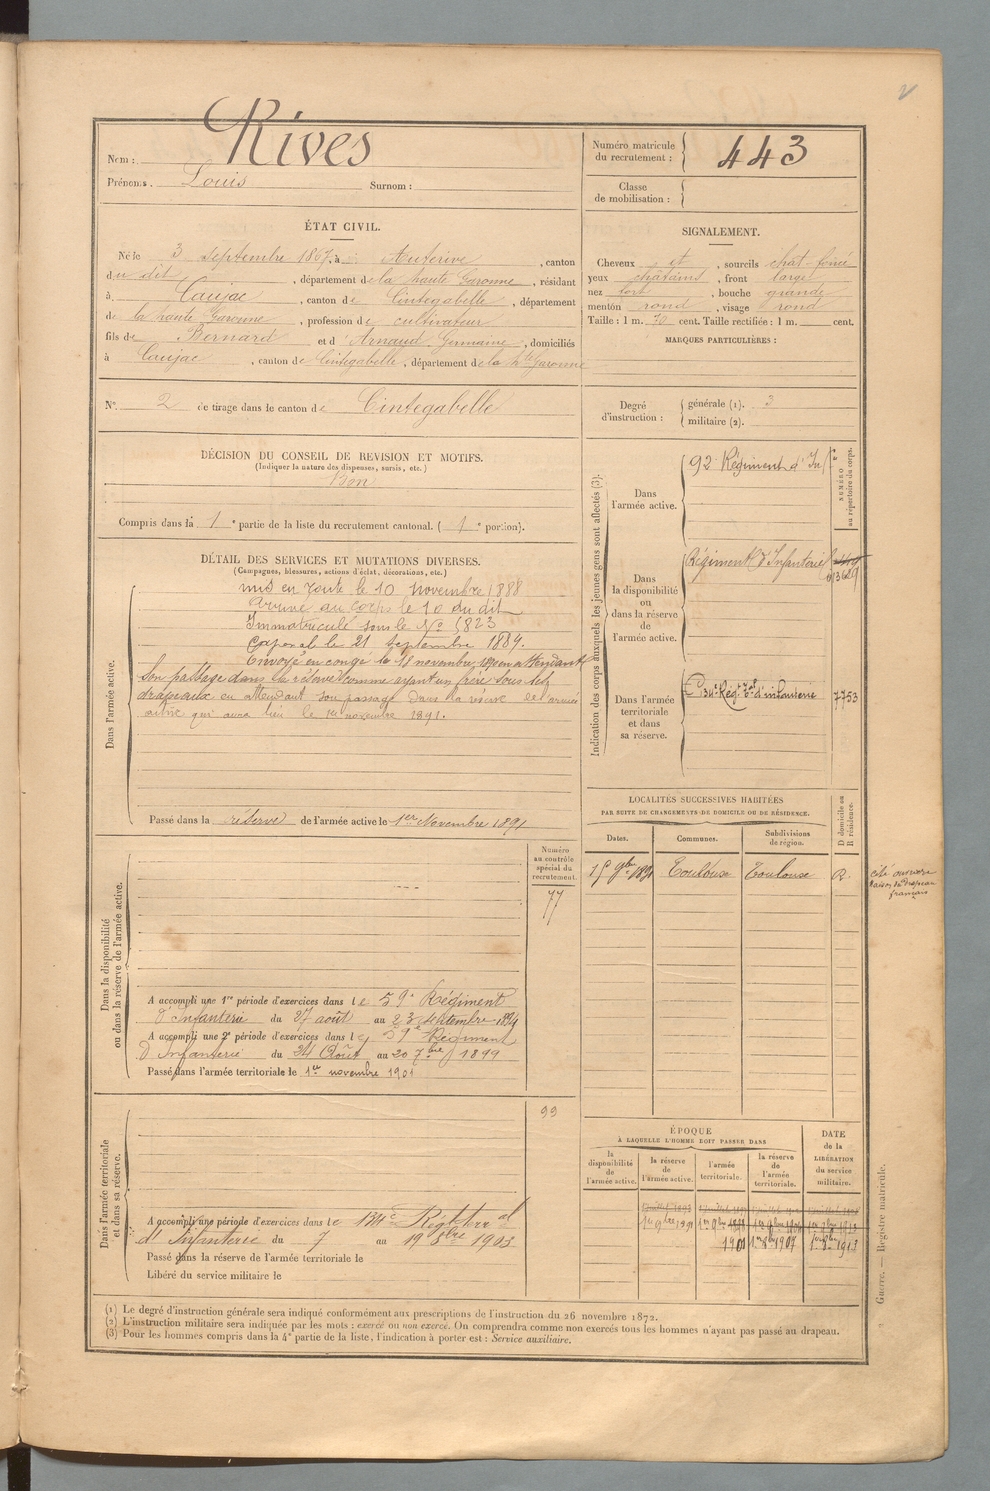 2
Nom : Rives
Prénoms. Louis Surnom :
Numéro matricule du recrutement : 443
Classe de mobilisation :
ÉTAT CIVIL.
Né le 3 septembre 1867, à Auterive, canton
du dit, département de la haute Garonne, résidant
à Caujac, canton de Cintegabelle, département
de la haute Garonne, profession de cultivateur
fils de Bernard et d'Arnaud Germaine, domiciliés
à Caujac, canton de Cintegabelle, département de la hte Garonne
N° 2 de tirage dans le canton de Cintegabelle
SIGNALEMENT.
Cheveux et, sourcils chat-foncé
yeux châtains, front large
nez fort, bouche grande
menton rond, visage rond
Taille : 1 m. 70 cent. Taille rectifiée : 1 m. cent.
MARQUES PARTICULIÈRES :
Degré d'instruction : générale (1). 3
militaire (2).
DÉCISION DU CONSEIL DE REVISION ET MOTIFS.
(Indiquer la nature des dispenses, sursis, etc.)
Bon
Compris dans la 1e partie de la liste du recrutement cantonal. (1e portion).
DÉTAIL DES SERVICES ET MUTATIONS DIVERSES.
(Campagnes, blessures, actions d'éclat, décorations, etc.)
Dans l'armée active.
mis en route le 10 novembre 1888
Arrivé au corps le 10 du dit
Immatriculé sous le No 1823
Caporal le 21 septembre 1889.
Envoyé en congé le 18 novembre 1890 en attendant
son passage dans la réserve comme ayant un frère sous les
drapeaux en attendant son passage dans la réserve de l'armée
active qui aura lieu le 1er novembre 1891.
Passé dans la réserve de l'armée active le 1er Novembre 1891
Indication des corps auxquels les jeunes gens sont affectés (3).
NUMÉRO au répertoire du corps.
Dans l'armée active.
92 Régiment d'Inf
Dans la disponibilité ou dans la réserve de l'armée active.
Régiment d'Infanterie
Dans l'armée territoriale et dans sa réserve.
d'infanterie
7753
LOCALITÉS SUCCESSIVES HABITÉES
PAR SUITE DE CHANGEMENTS DE DOMICILE OU DE RÉSIDENCE.
D domicile ou R résidence.
Dates. Communes. Subdivisions de région.
9bre 1891 Toulouse Toulouse R.
cité ouvrière
français
Dans la disponibilité ou dans la réserve de l'armée active.
Numéro au contrôle spécial du recrutement.
77
A accompli une 1re période d'exercices dans le 59e Régiment
d'Infanterie du 27 août au 23 septembre 1894
A accompli une 2e période d'exercices dans le 59e Régiment
d'Infanterie du 24 Août au 20 7bre 1899
Passé dans l'armée territoriale le 1er novembre 1901
Dans l'armée territoriale et dans sa réserve.
99
A accompli une période d'exercices dans le 134e Rég territ al
d'Infanterie du 7 au 19 8bre 1903
Passé dans la réserve de l'armée territoriale le
Libéré du service militaire le
ÉPOQUE
À LAQUELLE L'HOMME DOIT PASSER DANS
DATE de la LIBÉRATION du service militaire.
la disponibilité de l'armée active. la réserve de l'armée active. l'armée territoriale. la réserve de l'armée territoriale.
1er 9bre 1891
1901 1er 8bre 1907 1er 8bre 1913
(1) Le degré d'instruction générale sera indiqué conformément aux prescriptions de l'instruction du 26 novembre 1872.
(2) L'instruction militaire sera indiquée par les mots : exercé ou non exercé. On comprendra comme non exercés tous les hommes n'ayant pas passé au drapeau.
(3) Pour les hommes compris dans la 4e partie de la liste, l'indication à porter est : Service auxiliaire.
Guerre. — Registre matricule.